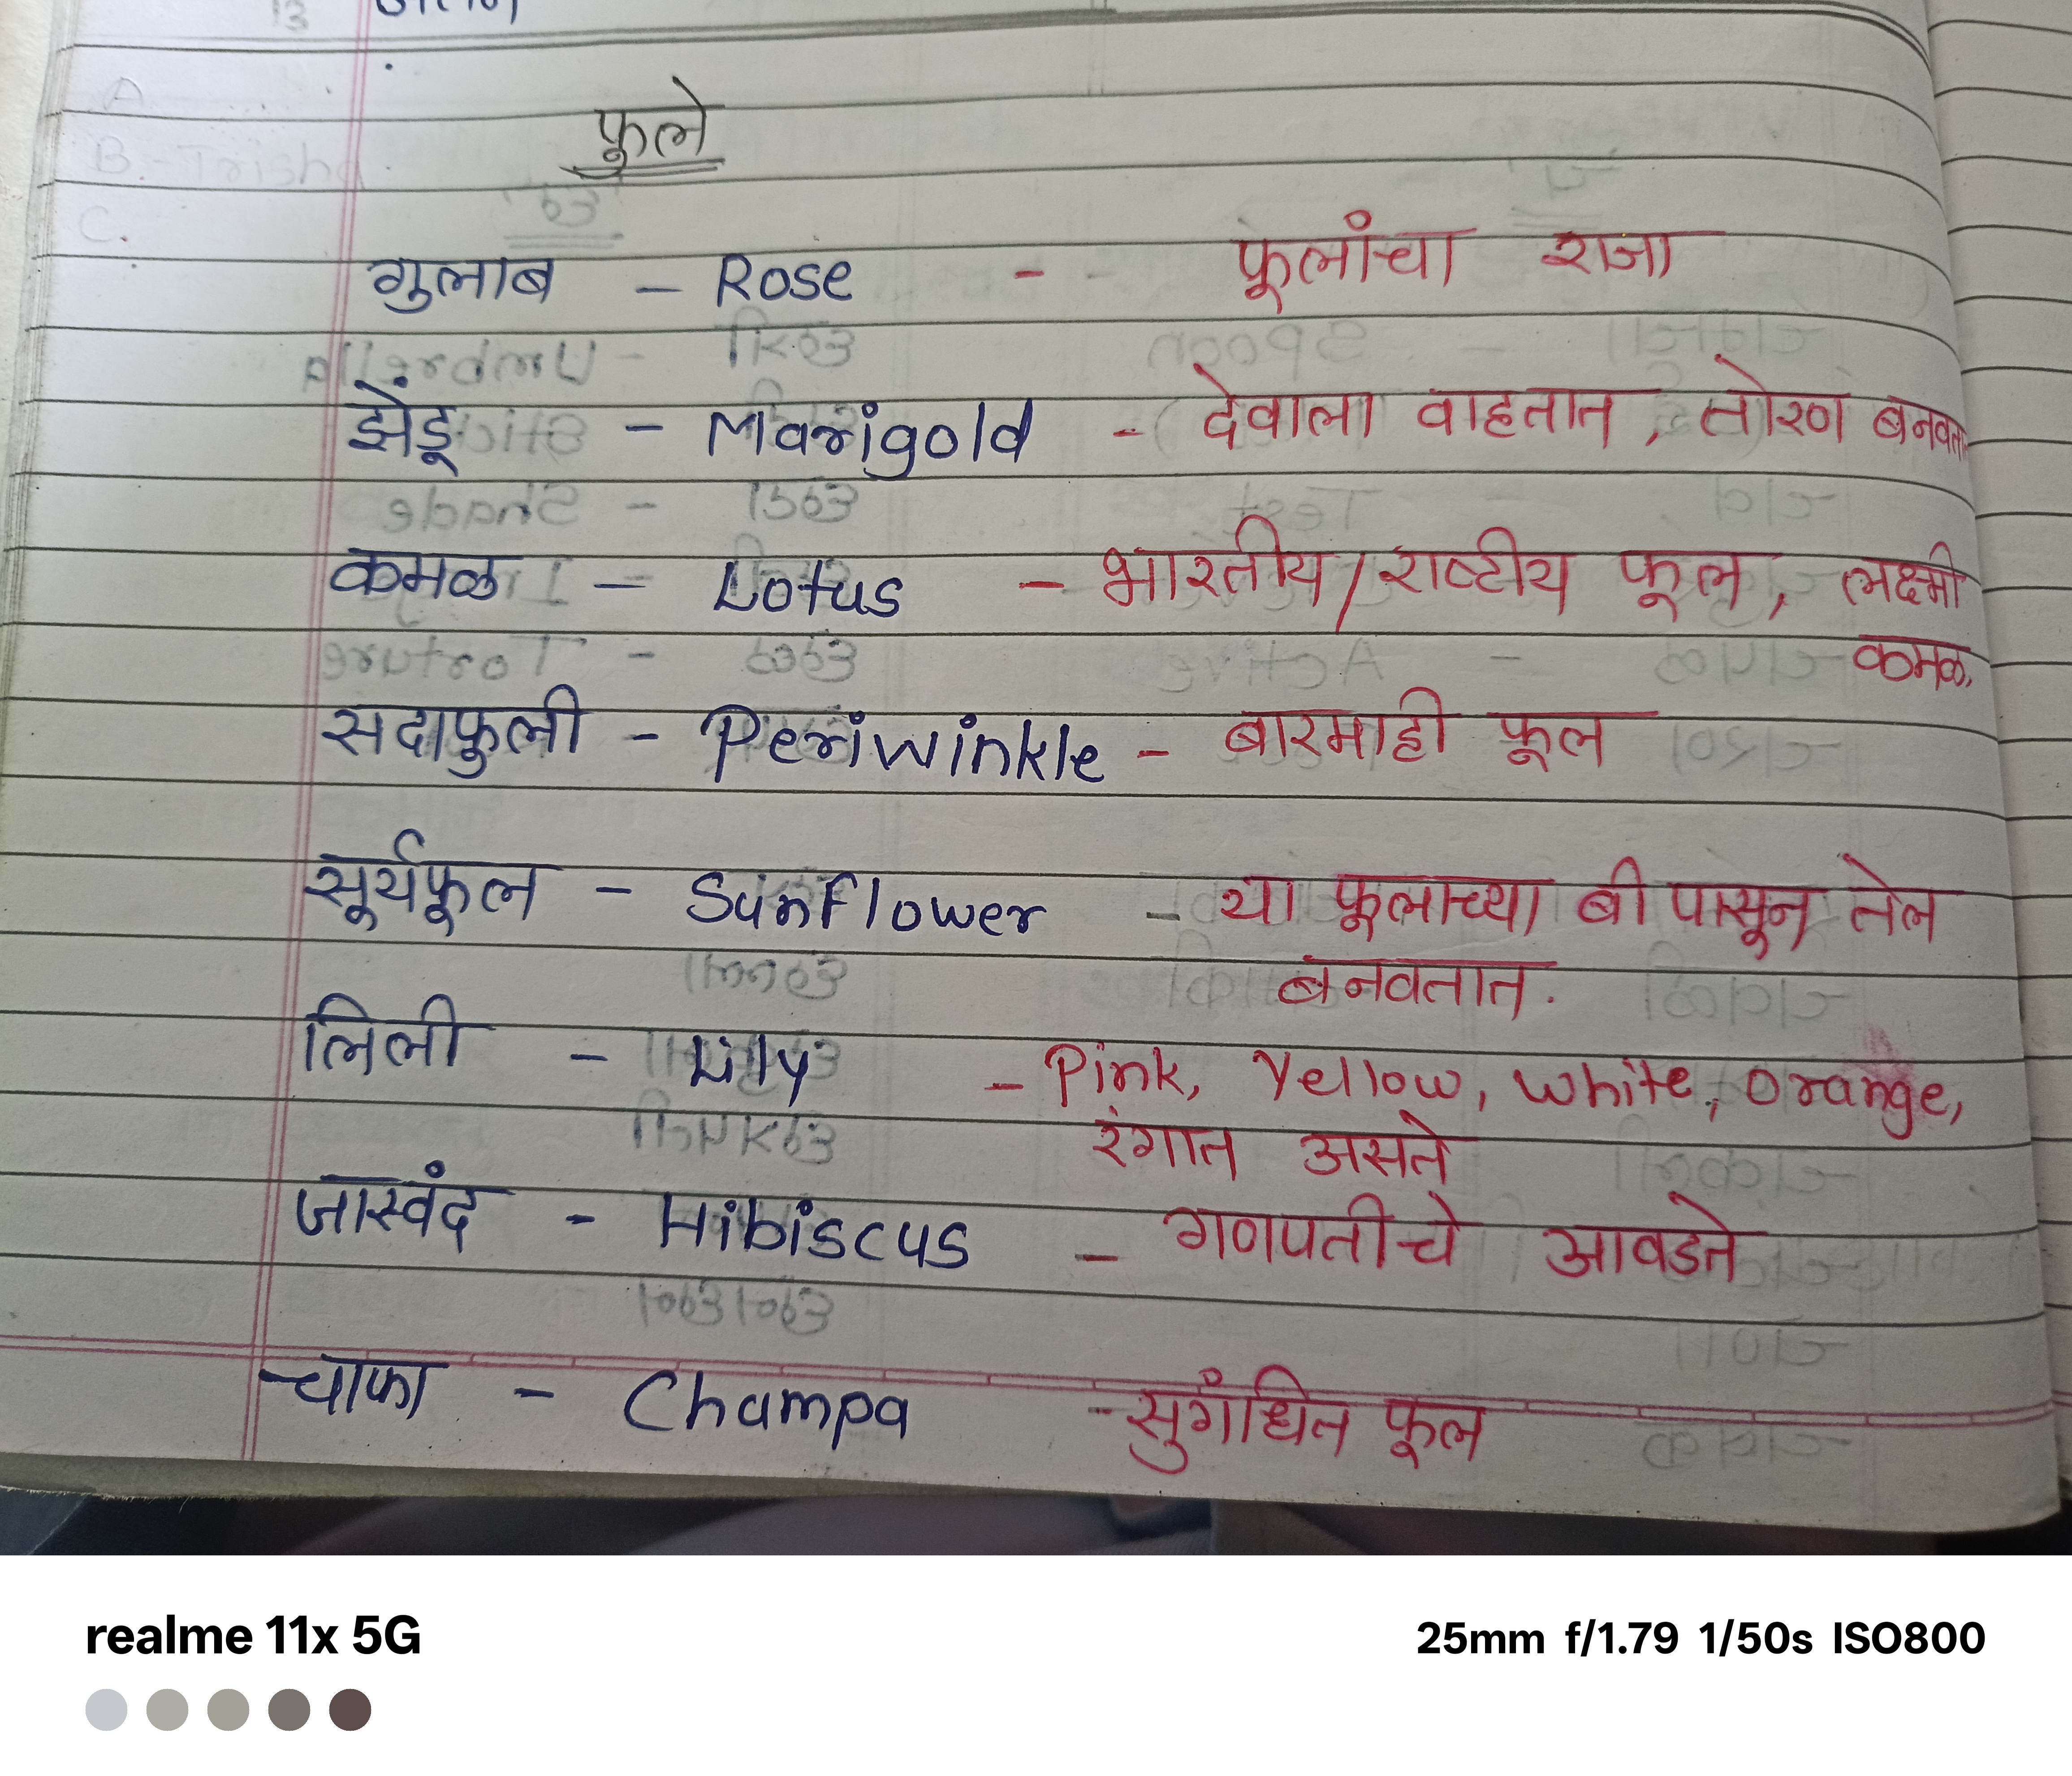 फूले
गुलाब - Rose - फूलांचा राजा
झेंडू - Marigold - देवाला वाहतात, तोरण बनवतात
कमळ - Lotus - भारतीय/राष्टीय फूल, लक्ष्मी
कमळ.
सदाफुली - Periwinkle - बारमाही फूल
सूर्यफूल - Sunflower - या फूलाच्या बी पासून तेल
बनवतात.
लिली - Lily - Pink, Yellow, white, Orange,
रंगात असते
जास्वंद - Hibiscus - गणपतीचे आवडते
चाफा - Champa - सुगंधित फूल
realme 11x 5G
25mm f/1.79 1/50s ISO800